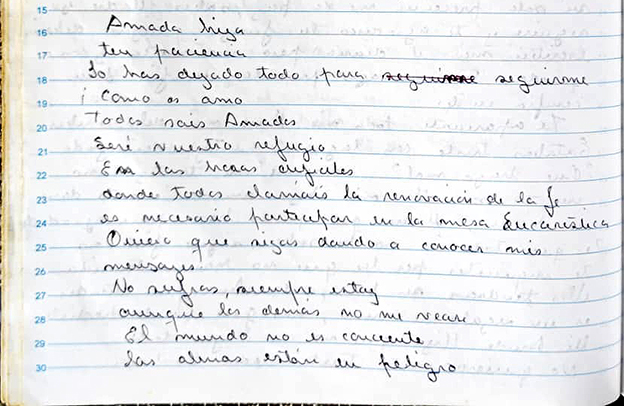 15
16 Amada hija
17 ten paciencia
18 Lo has dejado todo para seguirme seguirme
19 ¡Como os amo
20 Todos sois Amados
21 Seré vuestro refugio
22 En las horas dificiles
23 donde todos clamáis la renovación de la fe
24 es necesario participar en la mesa Eucarística
25 Quiero que sigas dando a conocer mis
26 mensajes
27 No sufras, siempre estoy
28 aunque los demás no me vean
29 El mundo no es conciente
30 las almas están en peligro